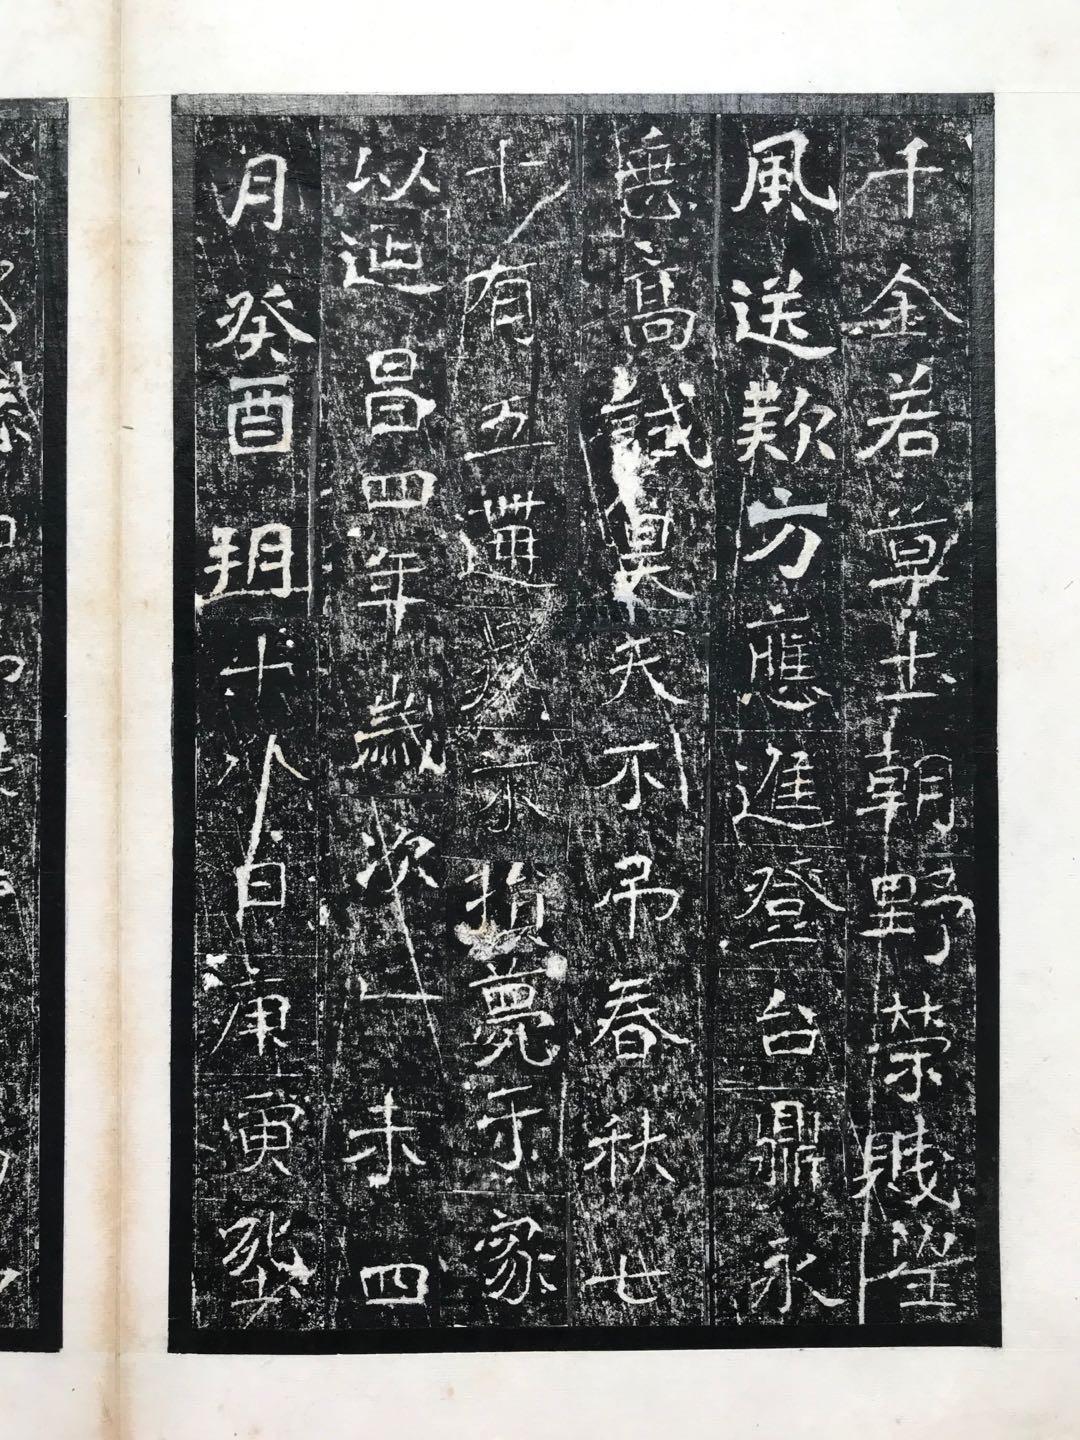 千金若草土朝野榮賤望
風送款方應進登台鼎永
高試昊天不弔春秋七
十有五遘疾不損薨于家
以延昌四年歲次乙未四
月癸酉朔十八日庚寅